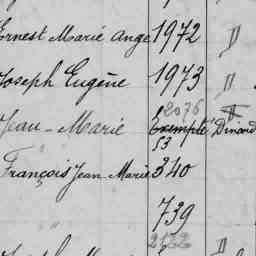 Ernest Marie Ange 1972 "
Joseph Eugène 1973 "
2076
Jean-Marie Exempté Dinard
53
François Jean-Marie 340
739
2132 "